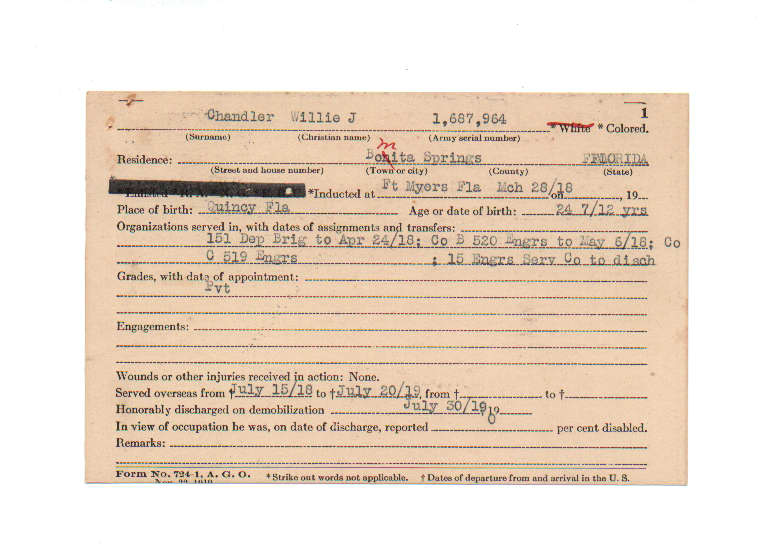 1
Chandler Willie J 1,687,964 * White * Colored.
(Surname) (Christian name) (Army serial number)
m
Residence: Bonita Springs FLORIDA
(Street and house number) (Town or city) (County) (State)
*Inducted at Ft Myers Fla Mch 28/18 on , 19
Place of birth: Quincy Fla Age or date of birth: 24 7/12 yrs
Organizations served in, with dates of assignments and transfers:
151 Dep Brig to Apr 24/18; Co B 520 Engrs to May 6/18; Co
C 519 Engrs ; 15 Engrs Serv Co to disch
Grades, with date of appointment:
Pvt
Engagements:
Wounds or other injuries received in action: None.
Served overseas from † July 15/18 to † July 20/19, from † to †
Honorably discharged on demobilization July 30/19, 19
0
In view of occupation he was, on date of discharge, reported per cent disabled.
Remarks:
Form No. 724-1, A. G. O. * Strike out words not applicable. † Dates of departure from and arrival in the U. S.
Nov. 22, 1919